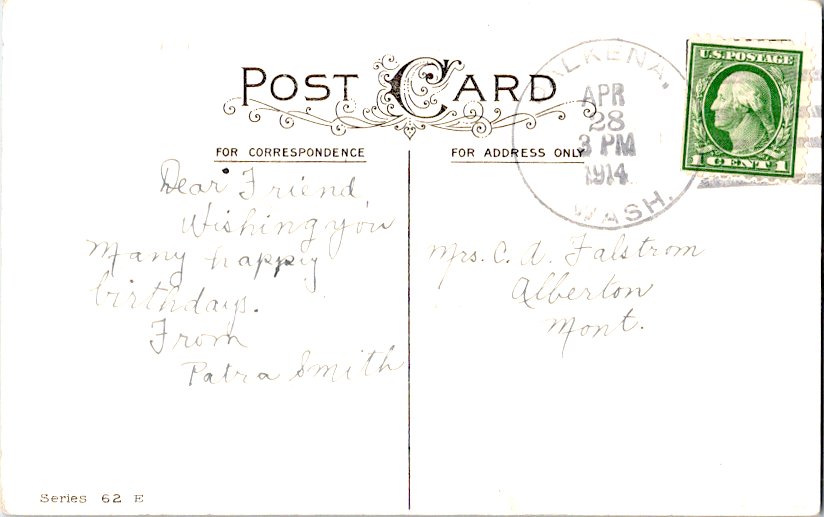 POST CARD
FOR CORRESPONDENCE
FOR ADDRESS ONLY
DALKENA,
APR
28
3 PM
1914
WASH.
U.S. POSTAGE
1 CENT 1
Dear Friend
Wishing you
many happy
birthdays.
From
Patra Smith
Mrs. C. A. Falstrom
Alberton
Mont.
Series 62 E